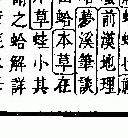 前漢地理
夢溪筆談
蛤本草在
草蛙小其
謂之蛤解詳